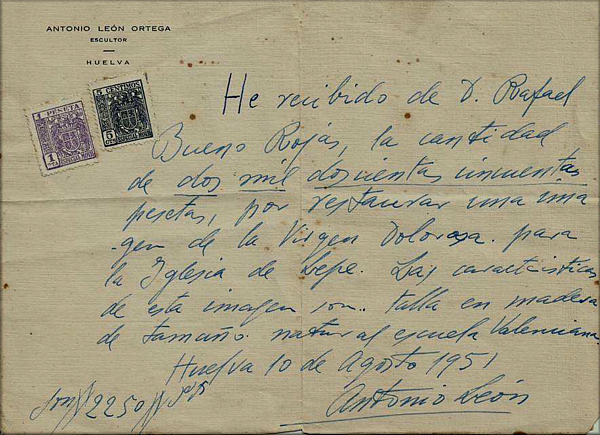 ANTONIO LEÓN ORTEGA
ESCULTOR
HUELVA
1 PESETA
1
5 CENTIMOS
5
He recibido de D. Rafael
Bueno Rojas, la cantidad
de dos mil doscientas cincuentas
pesetas, por restaurar una ima
gen de la Virgen Dolorosa. para
la Iglesia de Lepe. Las caracteisticas
de esta imagen son. talla en madera
de tamaño. natural escuela Valenciana.
Huelva 10 de Agosto 1951
Son // 2250 // pts
Antonio León